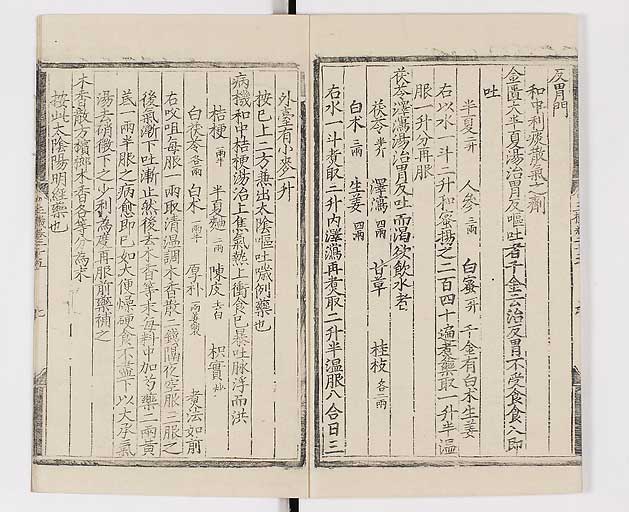 反胃門
和中利疲散氣之劑
金匱大半夏湯治胃反嘔吐者千金云治反胃不受食食入即
吐
半夏二升 人參三兩 白蜜一升 千金有白朮生姜
右以水一斗二升和蜜揚之二百四十遍煮藥取一升半溫
服一升分再服
茯苓澤瀉湯治胃反吐而渴欲飲水者
茯苓半斤 澤瀉四兩 甘草 桂枝各二兩
白朮三兩 生姜四兩
右水一斗煮取三升內澤瀉再煮取二升半溫服八合日三
外臺有小麥一升
按已上二方兼出太陰嘔吐歲例藥也
病機和中桔梗湯治上焦氣熱上衝食已暴吐脉浮而洪
桔梗 半夏麯二兩 陳皮去白 枳實炒
白茯苓各一兩 白朮一兩半 厚朴 煮法如前
右㕮咀每服一兩取清溫調木香散二錢隔夜空服三服之
後氣漸下吐漸止然後去木香等末每料中加芍藥二兩黄
芪一兩半服之病愈即已如大便燥硬食不盡下以大承氣
湯去硝微下之少利為度再服前藥補之
木香散方檳榔木香各等分為末
按此太陰陽明經藥也